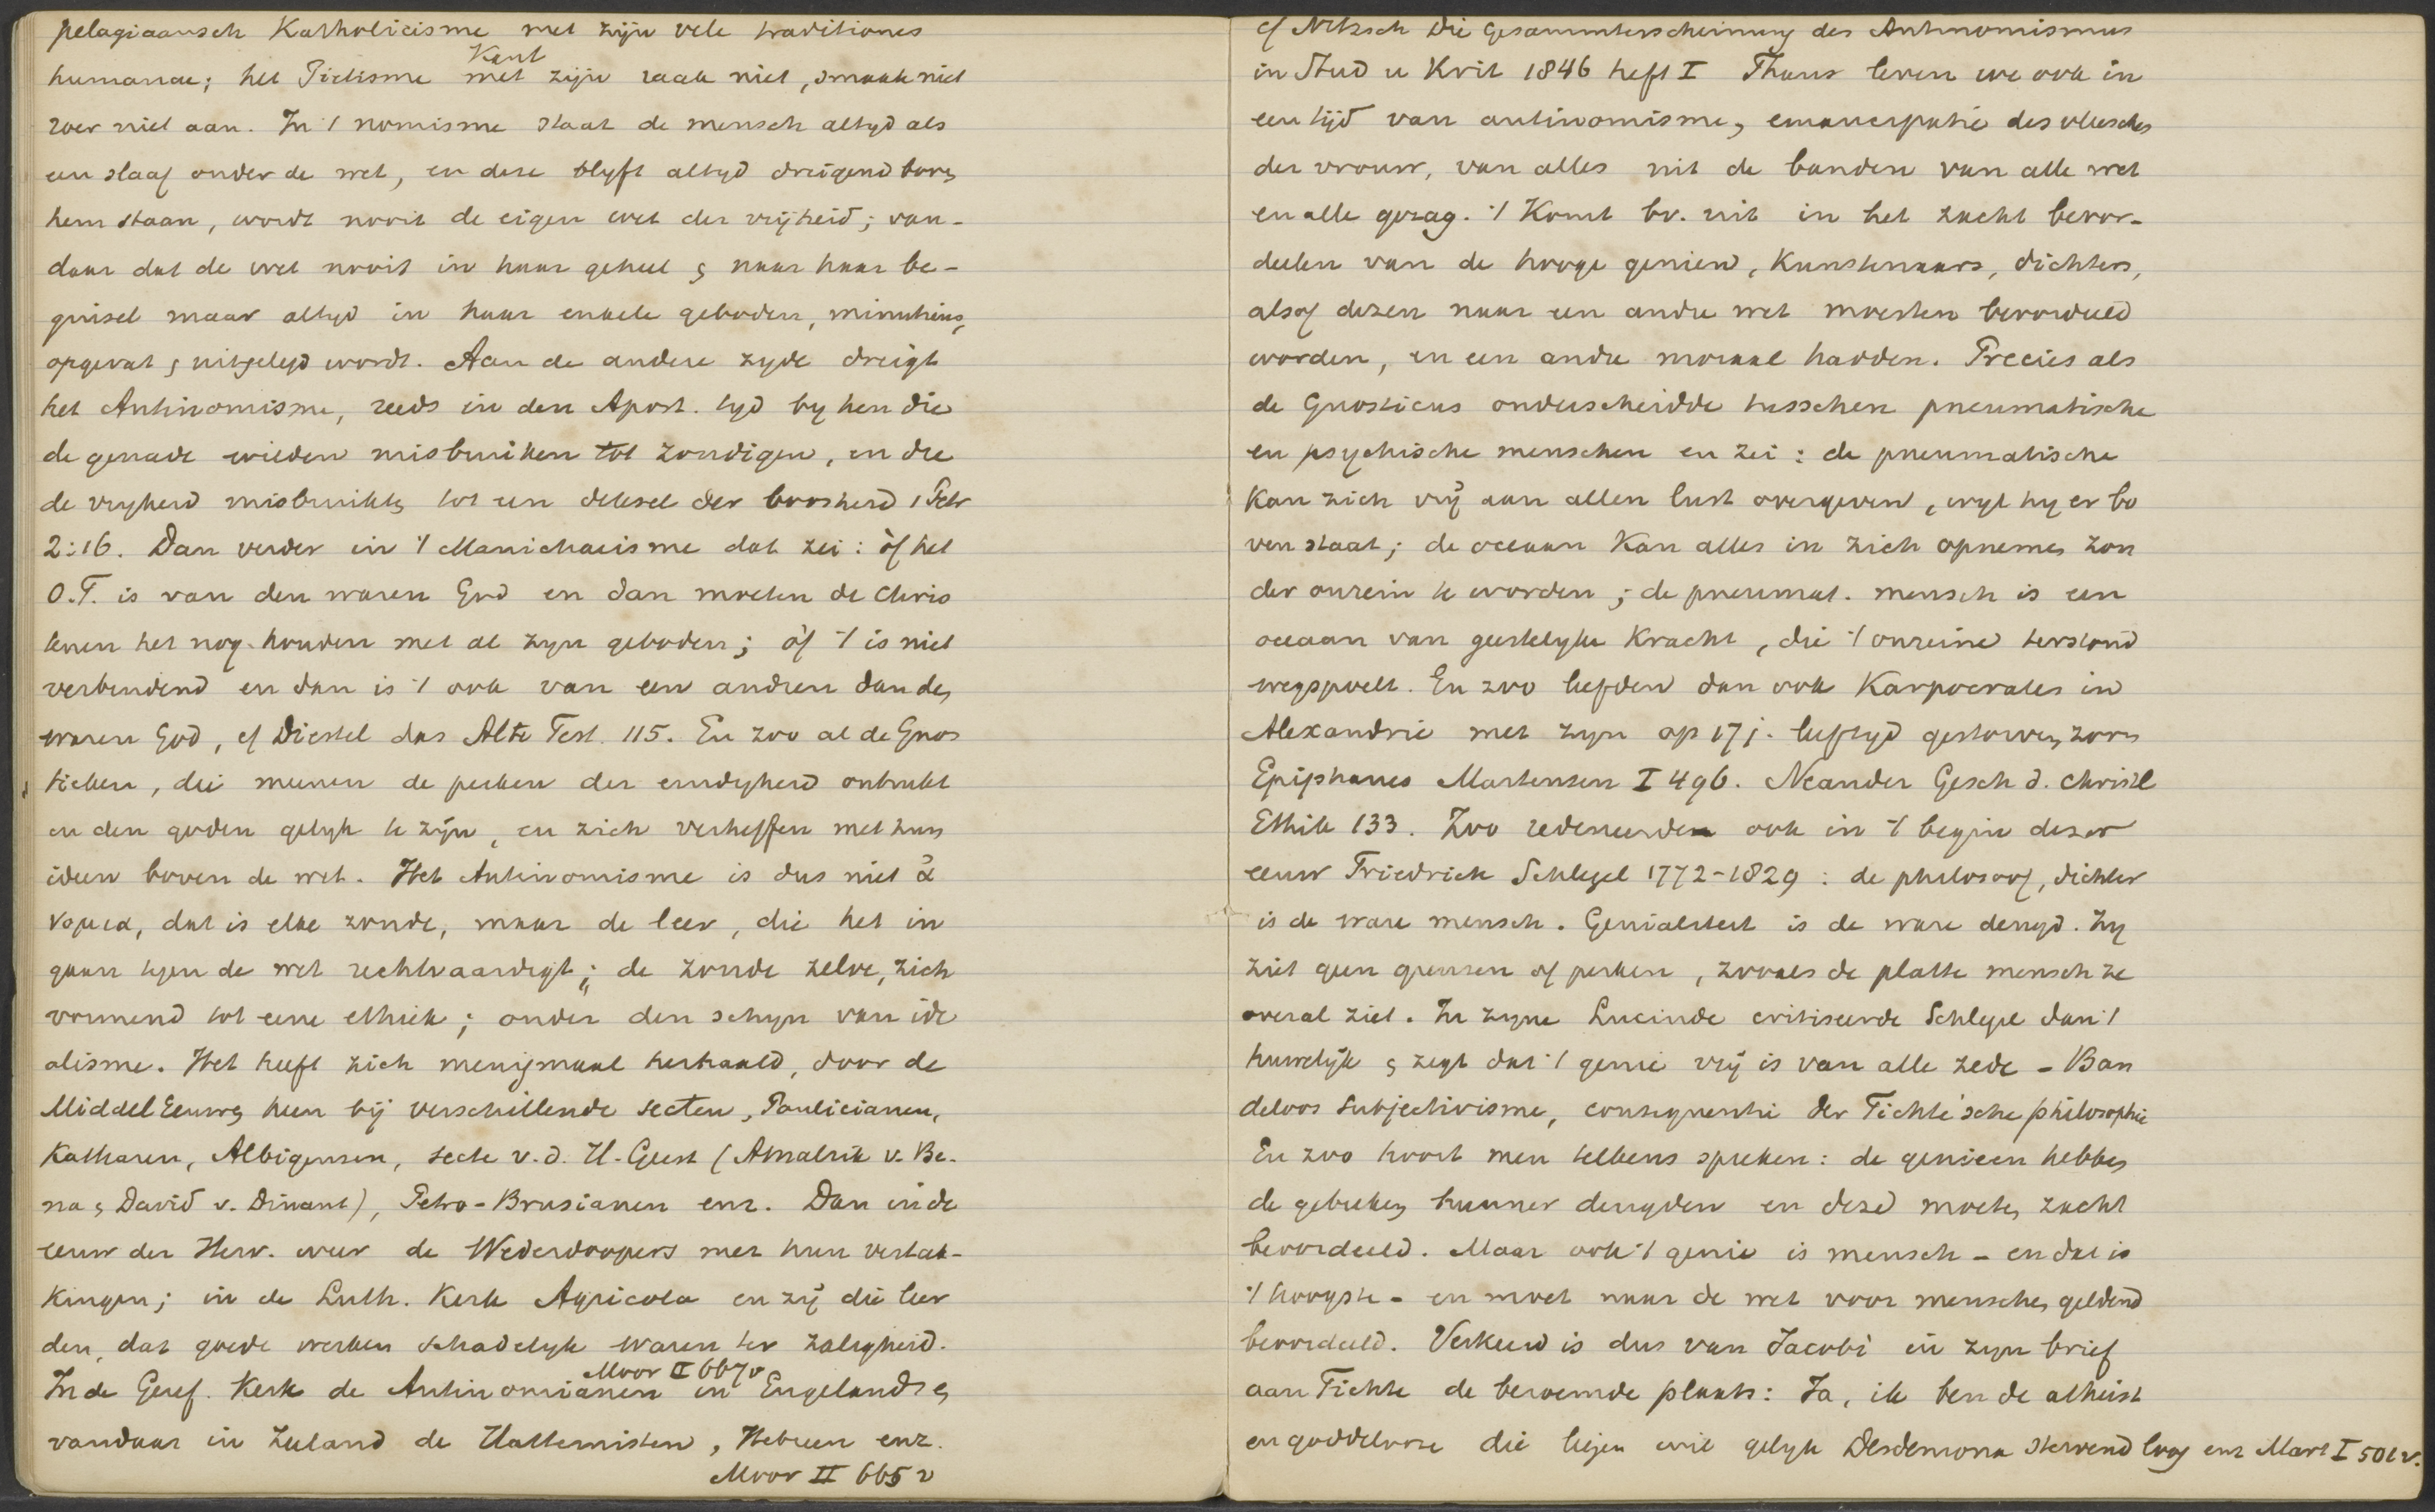 pelagiaansch Katholicisme met zijn vele traditiones
Kent
humanae; het Piëtisme met zijn raak niet, smaak niet
roer niet aan. In 't nomisme staat de mensch altyd als
een slaaf onder de wet, en deze blyft altyd dreigend boven
hem staan, wordt nooit de eigen wet der vrijheid; van-
daar dat de wet nooit in haar geheel & naar haar be-
ginsel maar altyd in haar enkele geboden, minutieus,
opgevat & uitgelegd wordt. Aan de andere zyde dreigt
het Antinomisme, reeds in den Apost. tyd by hen die
de genade wilden misbruiken tot zondigen, en die
de vryheid misbruikten tot een deksel der boosheid 1 Petr
2:16. Dan verder in 't Manichaeisme dat zei: òf het
O.T. is van den waren God en dan moeten de Chris
tenen het nog houden met al zyn geboden; òf 't is niet
verbindend en dan is 't ook van een andren dan den
waren God, cf Diestel das Alte Test. 115. En zoo al de Gnos
tieken, die meenen de perken der eindigheid ontrukt
en den goden gelyk te zijn, en zich verheffen met hun
ideen boven de wet. Het Antinomisme is dus niet ἀ
νομια, dat is elke zonde, maar de leer, die het in
gaan tegen de wet rechtvaardigt; de zonde zelve, zich
vormend tot eene ethiek; onder den schyn van ide
alisme. Het heeft zich menigmaal herhaald, door de
MiddelEeuwen heen bij verschillende secten, Paulicianen,
Katharen, Albigensen, secte v.d. H. Geest (Amalrik v. Be-
na & David v. Dinant), Petro-Brusianen enz. Dan in de
eeuw der Herv. weer de Wederdoopers met hun vertak-
kingen; in de Luth. Kerk Agricola en zij die leer
den, dat goede werken schadelyk waren ter zaligheid.
Moor II 667v
In de Geref. Kerk de Antinomianen in Engeland &
vandaar in Zeeland de Hattemisten, Hebreen enz.
Moor II 665 v
cf Nitzsch Die Gesammterscheinung des Antinomismus
in Stud u Krit 1846 heft I Thans leven we ook in
een tijd van antinomisme, emancipatie des vleesches
der vrouw, van alles uit de banden van alle wet
en alle gezag. 't Komt bv. uit in het zacht beoor-
deelen van de hooge genieën, Kunstenaars, dichters,
alsof dezen naar een andre wet moesten beoordeeld
worden, en een andre moraal hadden. Precies als
de Gnosticus onderscheidde tusschen pneumatische
en psychische menschen en zei: de pneumatische
Kan zich vrij aan allen lust overgeven, wyl hy er bo
ven staat; de oceaan Kan alles in zich opnemen zon
der onrein te worden; de pneumat. mensch is een
oceaan van geestelyke Kracht, die 't onreine terstond
wegspoelt. En zoo leefden dan ook Karpocrates in
Alexandrie met zyn op 17 j. leeftyd gestorven zoon
Epiphanes Martensen I 496. Neander Gesch d. christl
Ethik 133. Zoo redeneerden ook in 't begin dezer
eeuw Friedrich Schlegel 1772-1829: de philosoof, dichter
is de ware mensch. Genialiteit is de ware deugd. Hy
ziet geen grenzen of perken, zooals de platte mensch ze
overal ziet. In zyne Lucinde critiseerde Schlegel dan 't
huwelijk & zegt dat 't genie vrij is van alle zede - Ban
deloos Subjectivisme, consequentie der Fichte'sche philosophie
En zoo hoort men telkens spreken: de genieen hebben
de gebreken hunner deugden en deze moeten zacht
beoordeeld. Maar ook 't genie is mensch - en dat is
't hoogste - en moet naar de wet voor menschen geldend
beoordeeld. Verkeerd is dus van Jacobi in zyn brief
aan Fichte de beroemde plaats: Ja, ik ben de atheist
en goddelooze die liegen wil gelyk Desdemona stervend loog enz Mart I 501v.